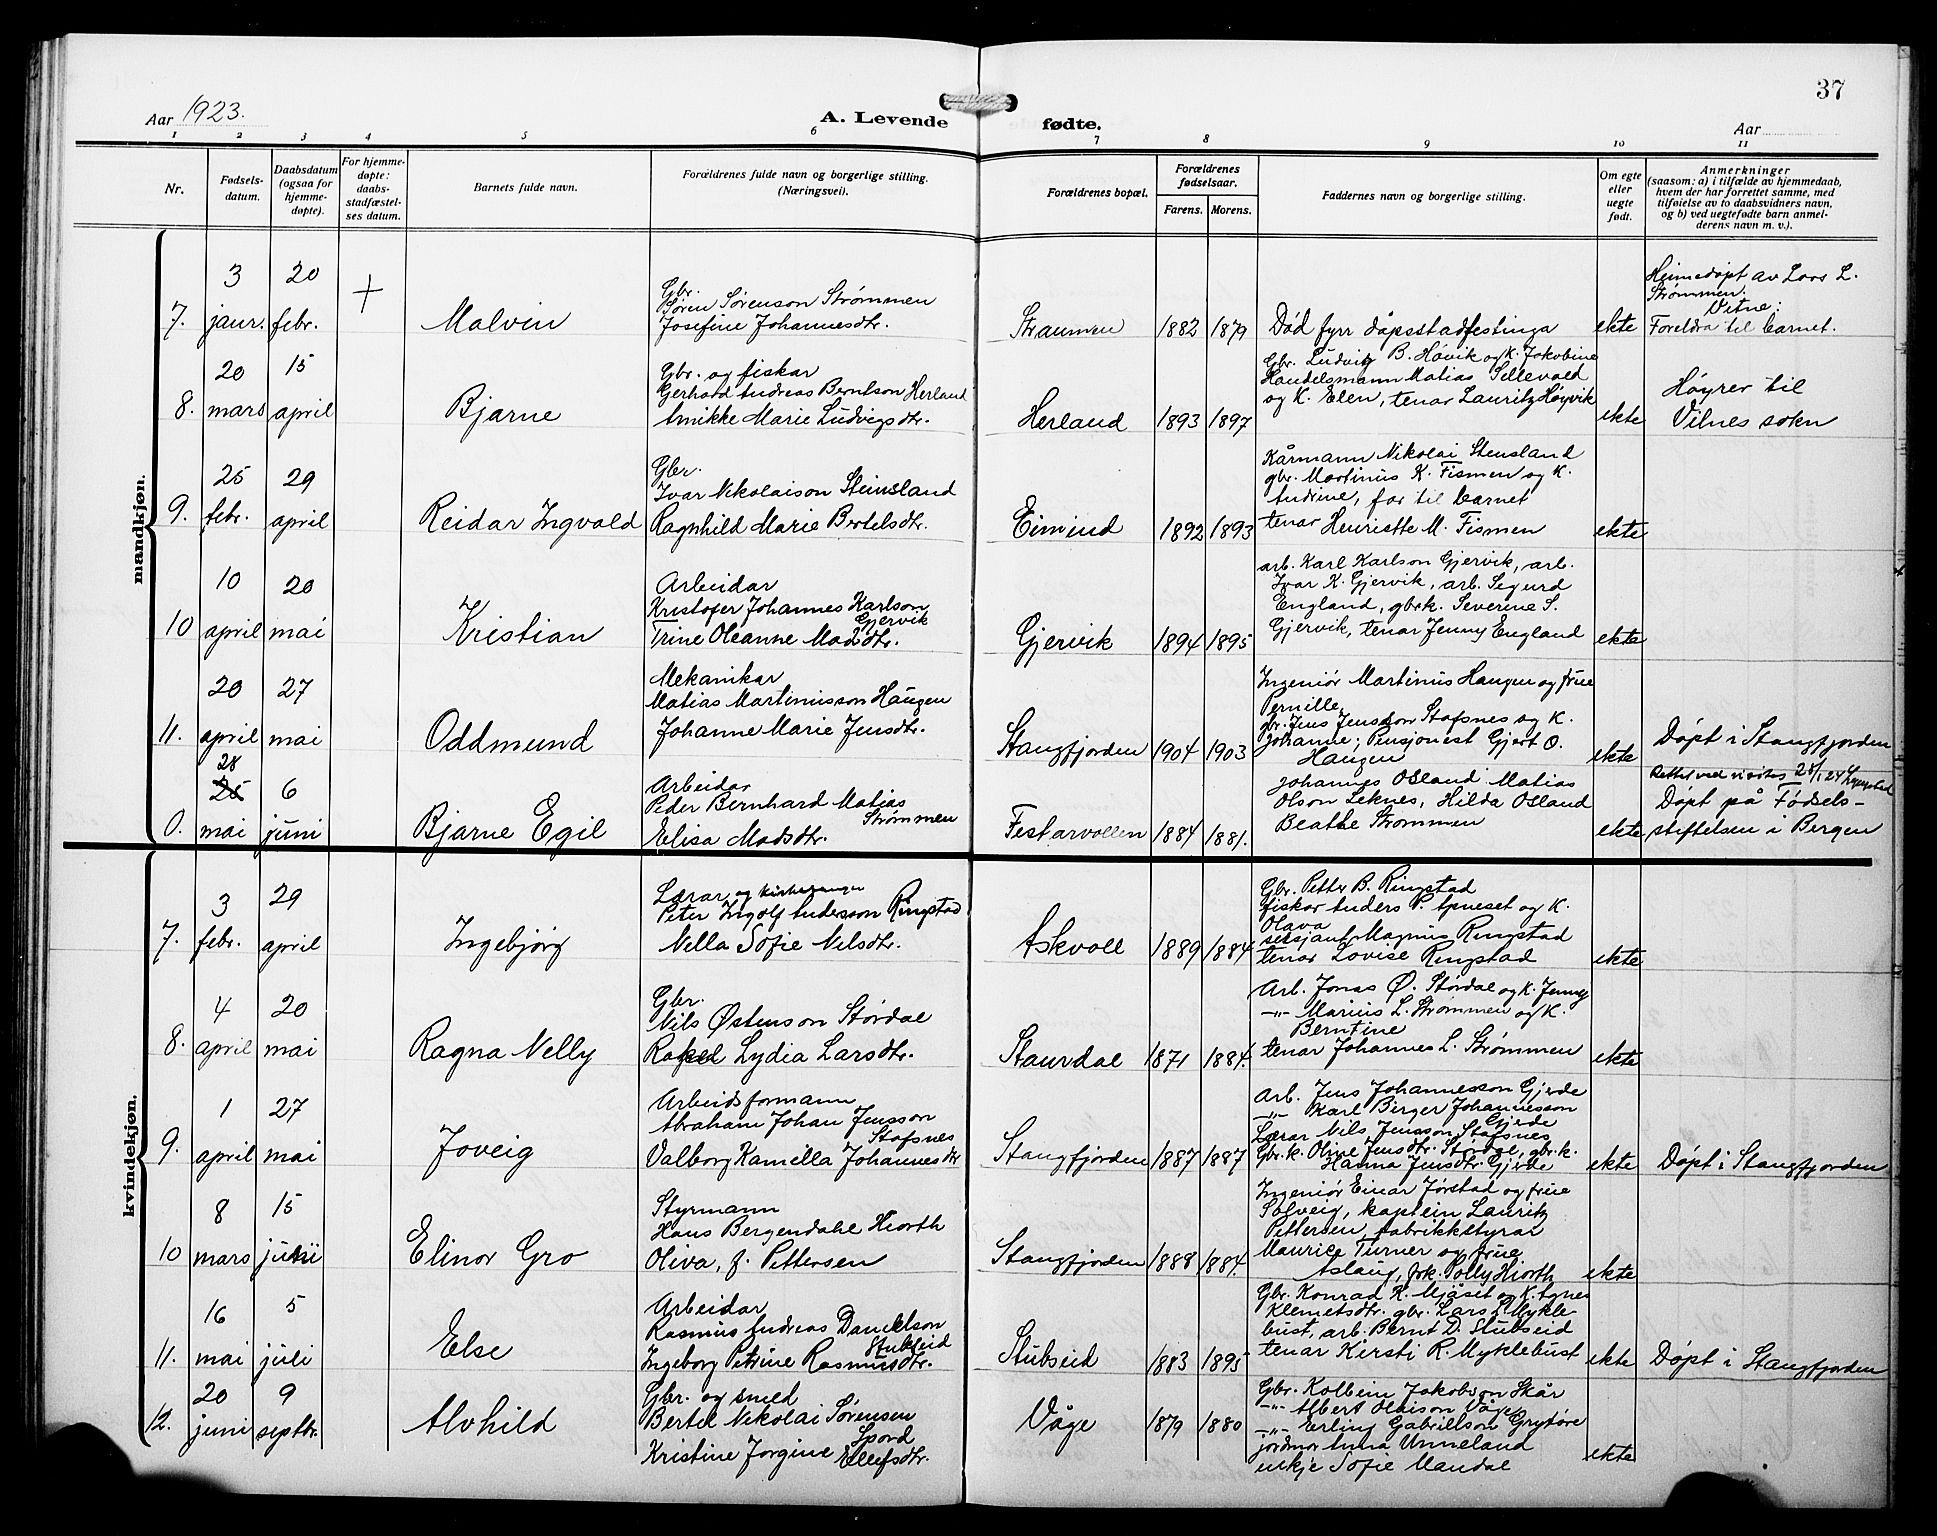 37
Aar 1923. A. Levende fødte. Aar
1 2 3 4 5 6 7 8 9 10 11
Nr.
Fødsels-
datum.
Daabsdatum
(ogsaa for
hjemme-
døpte).
For hjemme-
døpte:
daabs-
stadfæstel-
ses datum.
Barnets fulde navn.
Forældrenes fulde navn og borgerlige stilling.
(Næringsvei).
Forældrenes bopæl.
Forældrenes
fødselsaar.
Farens. Morens.
Faddernes navn og borgerlige stilling.
Om egte
eller
uegte
født.
Anmerkninger
(saasom: a) i tilfælde av hjemmedaab,
hvem der har forrettet samme, med
tilføielse av to daabsvidners navn,
og b) ved uegtefødte barn anmel-
derens navn m. v.).
mandkjøn.
7.
3
jaur.
20
febr.
+
Malvin
Gbr.
Søren Sørenson Strømmen
Josefine Johannesdtr.
Straumen
1882 1879
Død fyrr dåpsstadfestinga
ekte
Heimedøpt av Lars L.
Strømmen.
Vitne:
Foreldra til barnet.
8.
20
mars
15
april
Bjarne
Gbr. og fiskar
Gerhard Andreas Berntson Herland
Amikke Marie Ludvigsdtr.
Herland
1893 1897
Gbr. Ludvig B. Høvik og k. Jakobine
Handelsmann Matias Sellevold
og k. Elen, tenar Lauritz Høyvik
ekte
Høyrer til
Vilnes sokn
9.
25
febr.
29
april
Reidar Ingvald
Gbr.
Ivar Nikolaison Steinsland
Ragnhild Marie Bertelsdtr.
Eimind
1892 1893
Kårmann Nikolai Stensland
gbr. Martinus K. Fismen og k.
Andrine, far til barnet
tenar Henriette M. Fismen
ekte
10
10
april
20
mai
Kristian
Arbeidar
Kristofer Johannes Karlson
Gjervik
Trine Oleanne Madsdtr.
Gjervik
1894 1895
arb. Karl Karlson Gjervik, arb.
Ivar K. Gjervik, arb. Sigurd
England, gbrk. Severine S.
Gjervik, tenar Jenny England
ekte
11.
20
april
27
mai
Oddmund
Mekanikar
Matias Martinusson Haugen
Johanne Marie Jensdtr.
Stangfjorden
1904 1903
Ingeniør Martinus Haugen og frue
Pernille
gbr. Jens Jensson Stafsnes og k.
Johanne; Pensjonist Gjert O.
Haugen
ekte
Døpt i Stangfjorden
0.
28
25
mai
6
juni
Bjarne Egil
Arbeidar
Peder Bernhard Matias
Strømmen
Elisa Madsdtr.
Festarvollen
1884 1881.
Johannes Osland Matias
Olson Leknes, Hilda Osland
Beathe Strømmen
ekte
Rettet ved visitas 28/1 24
Døpt på Fødsels-
stiftelsen i Bergen
kvindekjøn.
7.
3
febr.
29
april
Ingebjørg
Lærar og kirkesanger
Peter Ingolf Andersson Ringstad
Nella Sofie Nilsdtr.
Askvoll
1889 1884.
Gbr. Petter B. Ringstad
fiskar Anders P. Apneset og k.
Olava
sersjant Magnus Ringstad
tenar Lovise Ringstad
ekte
8.
4
april
20
mai
Ragna Nelly
Gbr.
Nils Østenson Størdal
Rakel Lydia Larsdtr.
Staurdal
1871 1884.
Arb. Jonas Ø. Størdal og k. Jenny
-"- Marius L. Strømmen og k.
Berntine
tenar Johannes L. Strømmen
ekte
9.
1
april
27
mai
Joveig
Arbeidsformann
Abraham Johan Jensson
Stafsnes
Valborg Kamilla Johannesdtr
Stangfjorden
1887 1887
Arb. Jens Johannesson Gjerde
-"- Karl Birger Johannesson
Gjerde
Lærar Nils Jensson Stafsnes
Gbr. k. Oline Jensdtr. Stordal, gbr. k.
Hanna Jensdtr. Gjerde
ekte
Døpt i Stangfjorden
10
8
mars
15
juli
Elinor Gro
Styrmann
Hans Bergendahl Hiorth
Oliva, f. Pettersen
Stangfjorden
1888 1884.
Ingeniør Einar Jørstad og frue
Solveig, kaptein Lauritz
Pettersen, fabrikkstyrar
Maurice Turner og frue
Aslaug, frk. Polly Hiorth
ekte
11.
16
mai
5
juli
Else
Arbeidar
Rasmus Andreas Danielson
Stubseid
Ingeborg Petrine Rasmusdtr.
Stubseid
1883 1895
Gbr. Konrad K. Mjåset og k. Agnes
Klemetsdtr. gbr. Lars L. Mykle-
bust, arb. Bernt D. Stubseid
tenar Kirsti R. Myklebust
ekte
Døpt i Stangfjorden
12.
20
juni
9
septbr.
Alvhild
Gbr. og smed
Bertel Nikolai Sørensen
Spord
Kristine Jorgine Ellefsdtr.
Våge
1879 1880
Gbr. Kolbein Jakobson Skår
-"- Albert Olaison Våge
-"- Erling Gabrielson Grytøre
jordmor Anna Unneland
enkje Sofie Mandal
ekte